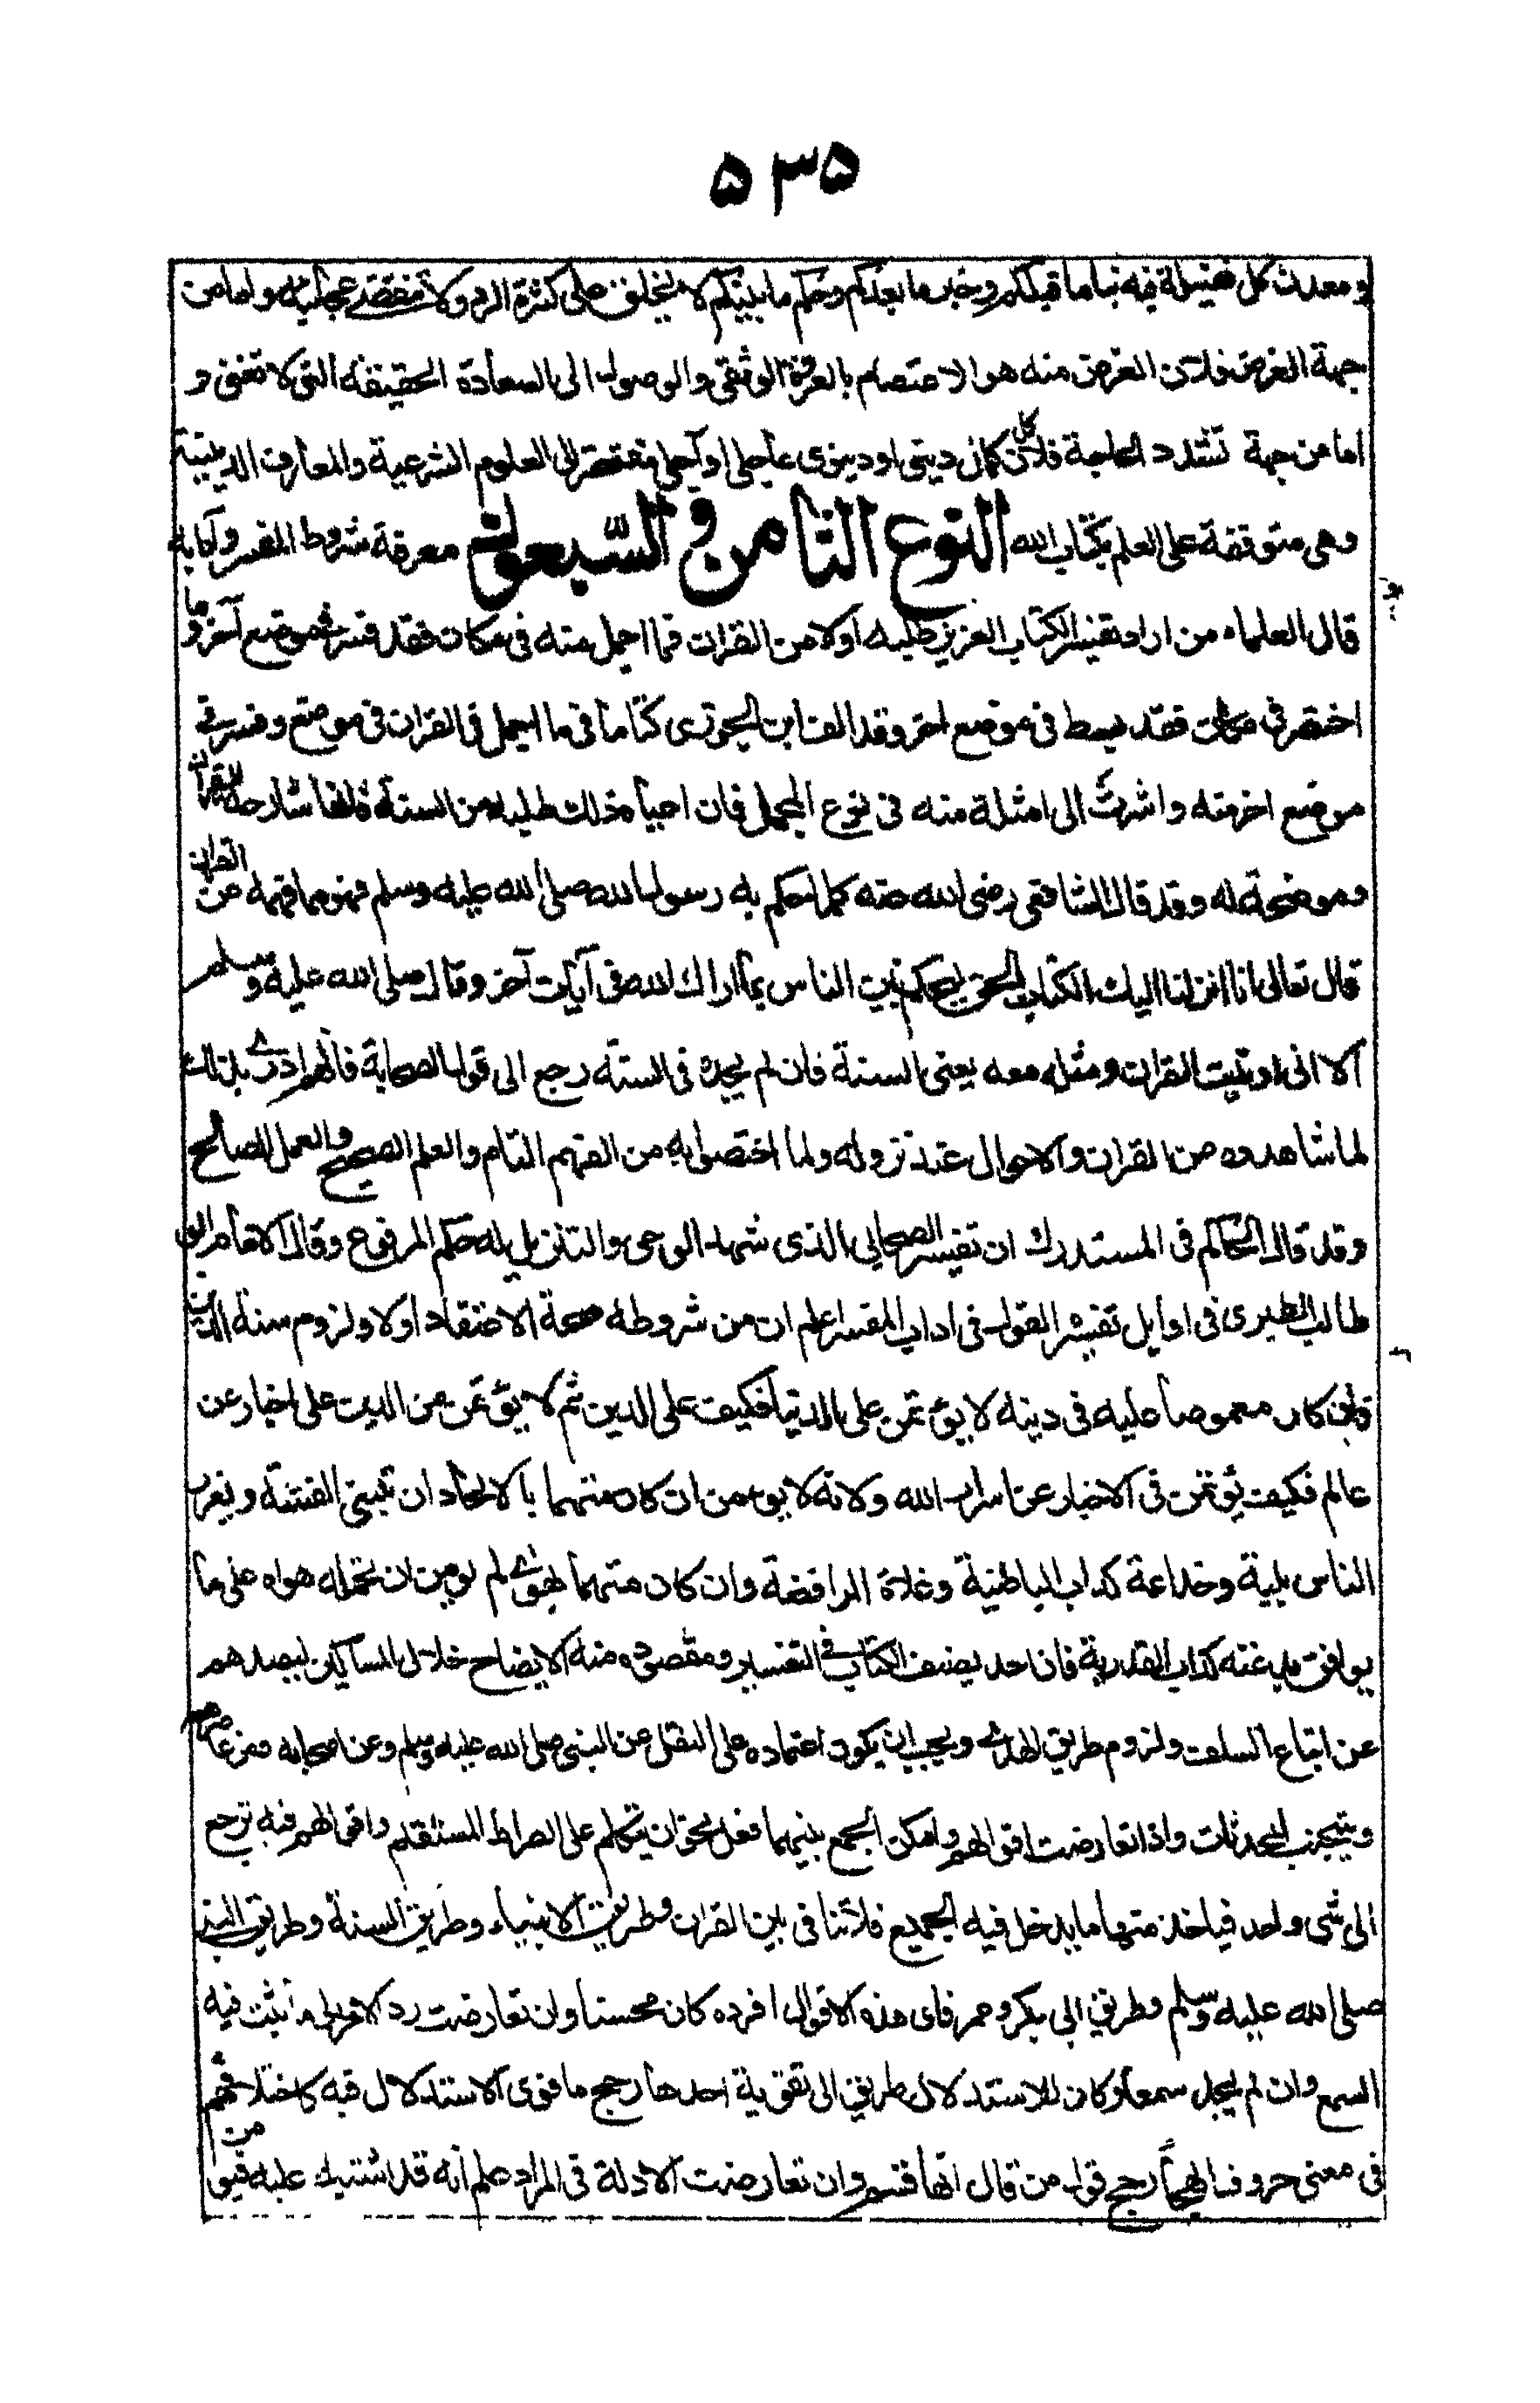 ۵۳۵
ومعدن كل فضيلة فيه نبأ ما قبلكم وخبر ما بعدكم وحكم ما بينكم لا يخلق على كثرة الرد ولا تنقضى عجائبه واما من
جهة الغرض فلان الغرض منه هو الاعتصام بالعروة الوثقى والوصول الى السعادة الحقيقة التى لا تفنى و
اما من جهة تشدد الحاجة فلان كل كمال دينى او دنيوى عاجلى او آجلى مفتقر الى العلوم الشرعية والمعارف الدينية
وهى متوقفة على العلم بكتاب الله النوع الثامن والسبعون معرفة شروط المفسر وآدابه
قال العلماء من اراد تفسير الكتاب العزيز طلبه اولا من القران فما اجمل منه فى مكان فقد فسر فى موضع آخر وما
اختصر فى مكان فقد بسط فى موضع اخر وقد الف ابن الجوزى كتابا فى ما اجمل فى القران فى موضع وفسر فى
موضع اخر منه واشرت الى امثلة منه فى نوع المجمل فان اعياه ذلك طلبه من السنة فانها شارحة للقرآن
وموضحة له وقد قال الشافعى رضى الله عنه كلما حكم به رسول الله صلى الله عليه وسلم فهو مما فهمه من القران
قال تعالى انا انزلنا اليك الكتاب بالحق لتحكم بين الناس بما اراك الله فى آيات آخر وقال صلى الله عليه وسلم
الا انى اوتيت القران ومثله معه يعنى السنة فان لم يجده فى السنة رجع الى قول الصحابة فانهم ادرى بذلك
لما شاهدوه من القران والاحوال عند نزوله ولما اختصوا به من الفهم التام والعلم الصحيح والعمل الصالح
وقد قال الحاكم فى المستدرك ان تفسير الصحابى الذى شهد الوحى والتنزيل له حكم المرفوع وقال الامام ابو
طالب الطبرى فى اوايل تفسيره القول فى اداب المفسر اعلم ان من شروطه صحة الاعتقاد اولا ولزوم سنة الدين
فان كان مغموصا عليه فى دينه لا يؤتمن على الدنيا فكيف على الدين ثم لا يؤتمن من الدين على اخبار عن
عالم فكيف يؤتمن فى الاخبار عن اسرار الله ولانه لا يؤمن ان كان متهما بالالحاد ان تبتغى الفتنة ويغر
الناس بلية وخداعة كداب الباطنية وغلاة الرافضة وان كان متهما بهوى لم يومن ان تحمله هواه على ما
يوافق بدعته كداب القدرية فان احد يصنف الكتاب فى التفسير ومقصوده منه الايضاح خلال المساكين ليصدهم
عن اتباع السلف ولزوم طريق الهدى ويجب ان يكون اعتماده على النقل عن النبى صلى الله عليه وسلم وعن اصحابه ومن عاصرهم
ويتجنب المحدثات واذا تعارضت اقوالهم وامكن الجمع بينهما فعل نحو ان يتكلم على الصراط المستقيم واقوالهم فيه ترجع
الى شى واحد فياخذ منها ما يدخل فيه الجميع فلا تنافى بين القران وطريق الانبياء وطريق السنة وطريق النبى
صلى الله عليه وسلم وطريق ابى بكر وعمر فاى هذه الاقوال افرده كان محسنا وان تعارضت رد الامر الى ما ثبت فيه
السمع وان لم يجد سمعا وكان للاستدلال طريق الى تقوية احدها رجح ما قوى الاستدلال فيه كاختلافهم
فى معنى حروف الهجا رجح قول من قال انها قسم وان تعارضت الادلة فى المراد علم انه قد اشتبه عليه فيومن